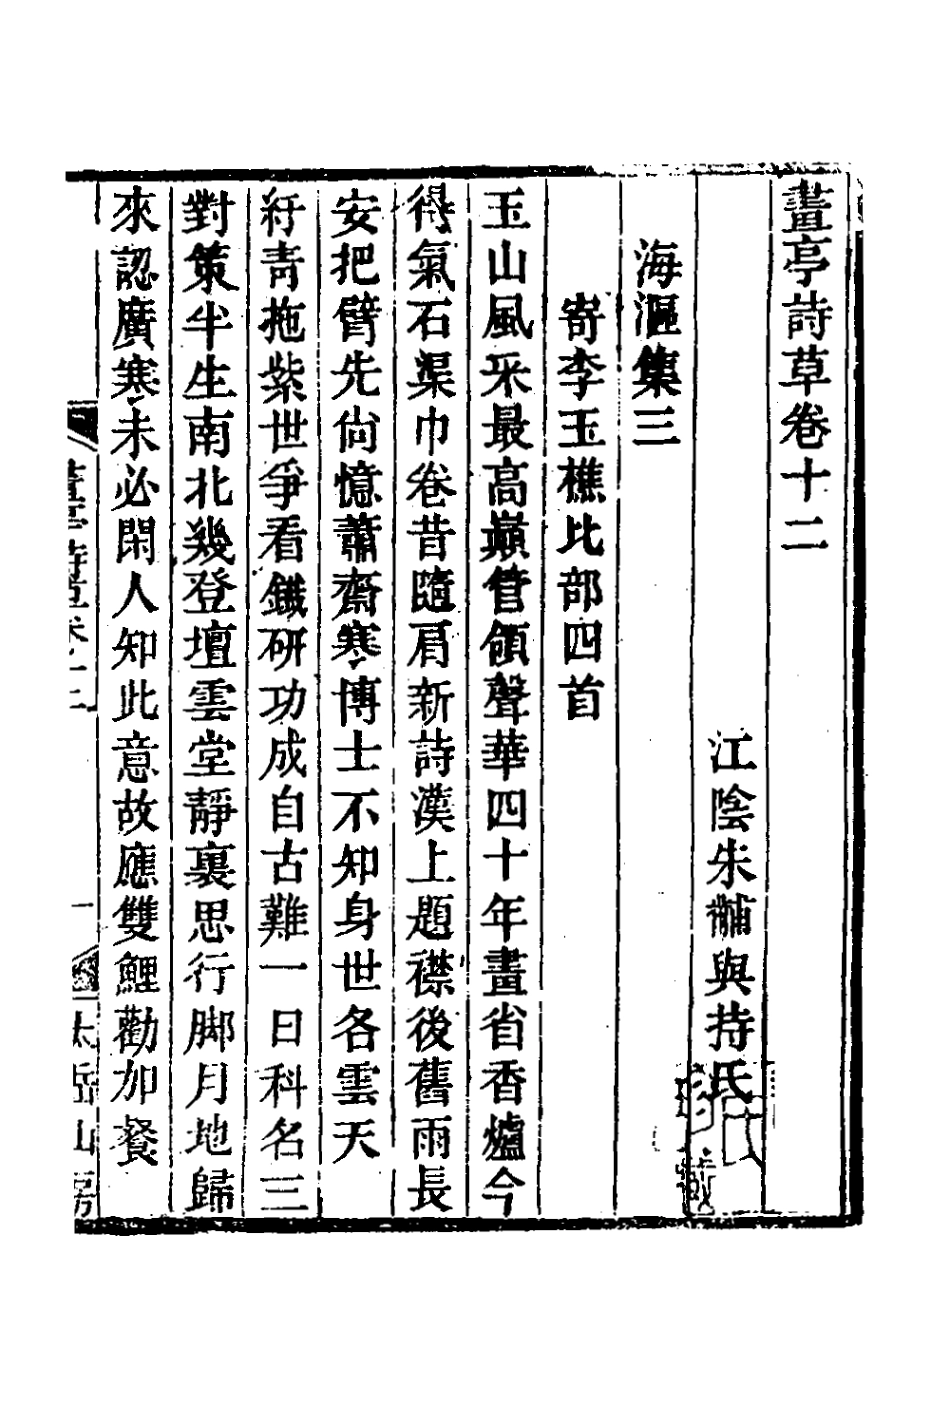 畫亭詩草卷十二
江陰朱黼與持氏
海漚集三
寄李玉樵比部四首
玉山風采最高巔管領聲華四十年畫省香爐今
得氣石渠巾卷昔隨肩新詩漢上題襟後舊雨長
安把臂先尙憶蕭齋寒博士不知身世各雲天
紆青拖紫世爭看鐵研功成自古難一日科名三
對策半生南北幾登壇雲堂靜裏思行脚月地歸
來認廣寒未必閑人知此意故應雙鯉勸加餐
畫亭詩草卷十二
一
岳山房